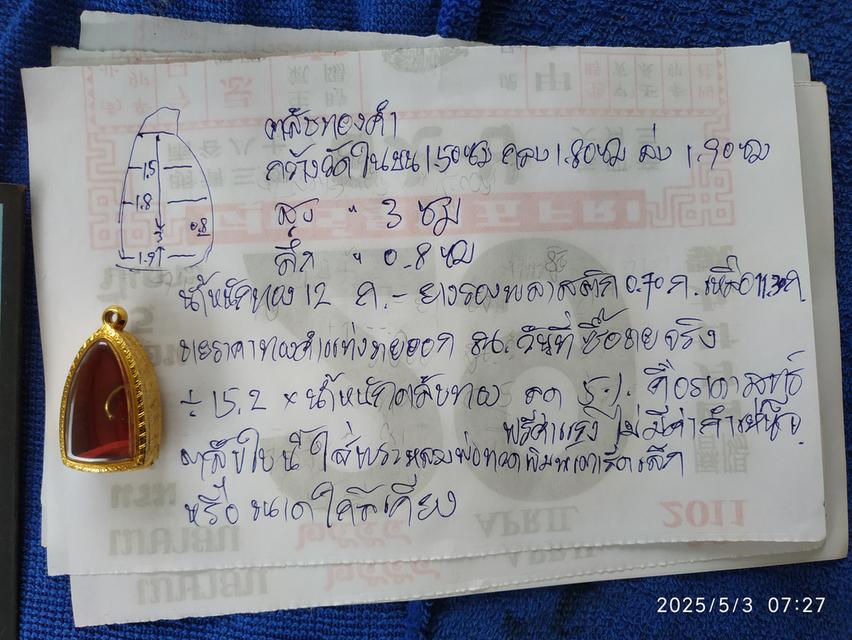 ตลับทองคำ
กว้างวัดใน บน 1.50 ซม กลาง 1.80 ซม ล่าง 1.90 ซม
สูง " 3 ซม
ลึก " 0.8 ซม
1.5
1.8
0.8
3
1.9
น้ำหนักทอง 12 ก. - ยางรองพลาสติก 0.70 ก. เหลือ 11.30 ก.
ขายราคาทองคำแท่งขายออก ณ. วันที่ซื้อขายจริง
÷ 15.2 × น้ำหนักตลับทอง ลด 5% คือราคาสุทธิ
ฟรีค่าแรง ไม่มีค่ากำเหน็จ
ตลับใบนี้ ใส่พระหลวงพ่อทวดพิมพ์เตารีดเล็ก
หรือ ขนาดใกล้เคียง
FRI
30
APRIL
APRIL
2011
เมษายน
เมษายน
๒๕๕๔
2025/5/3 07:27